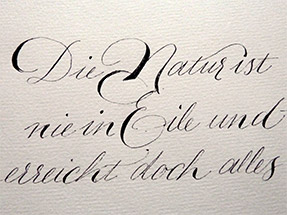 Die Natur ist
nie in Eile und
erreicht doch alles